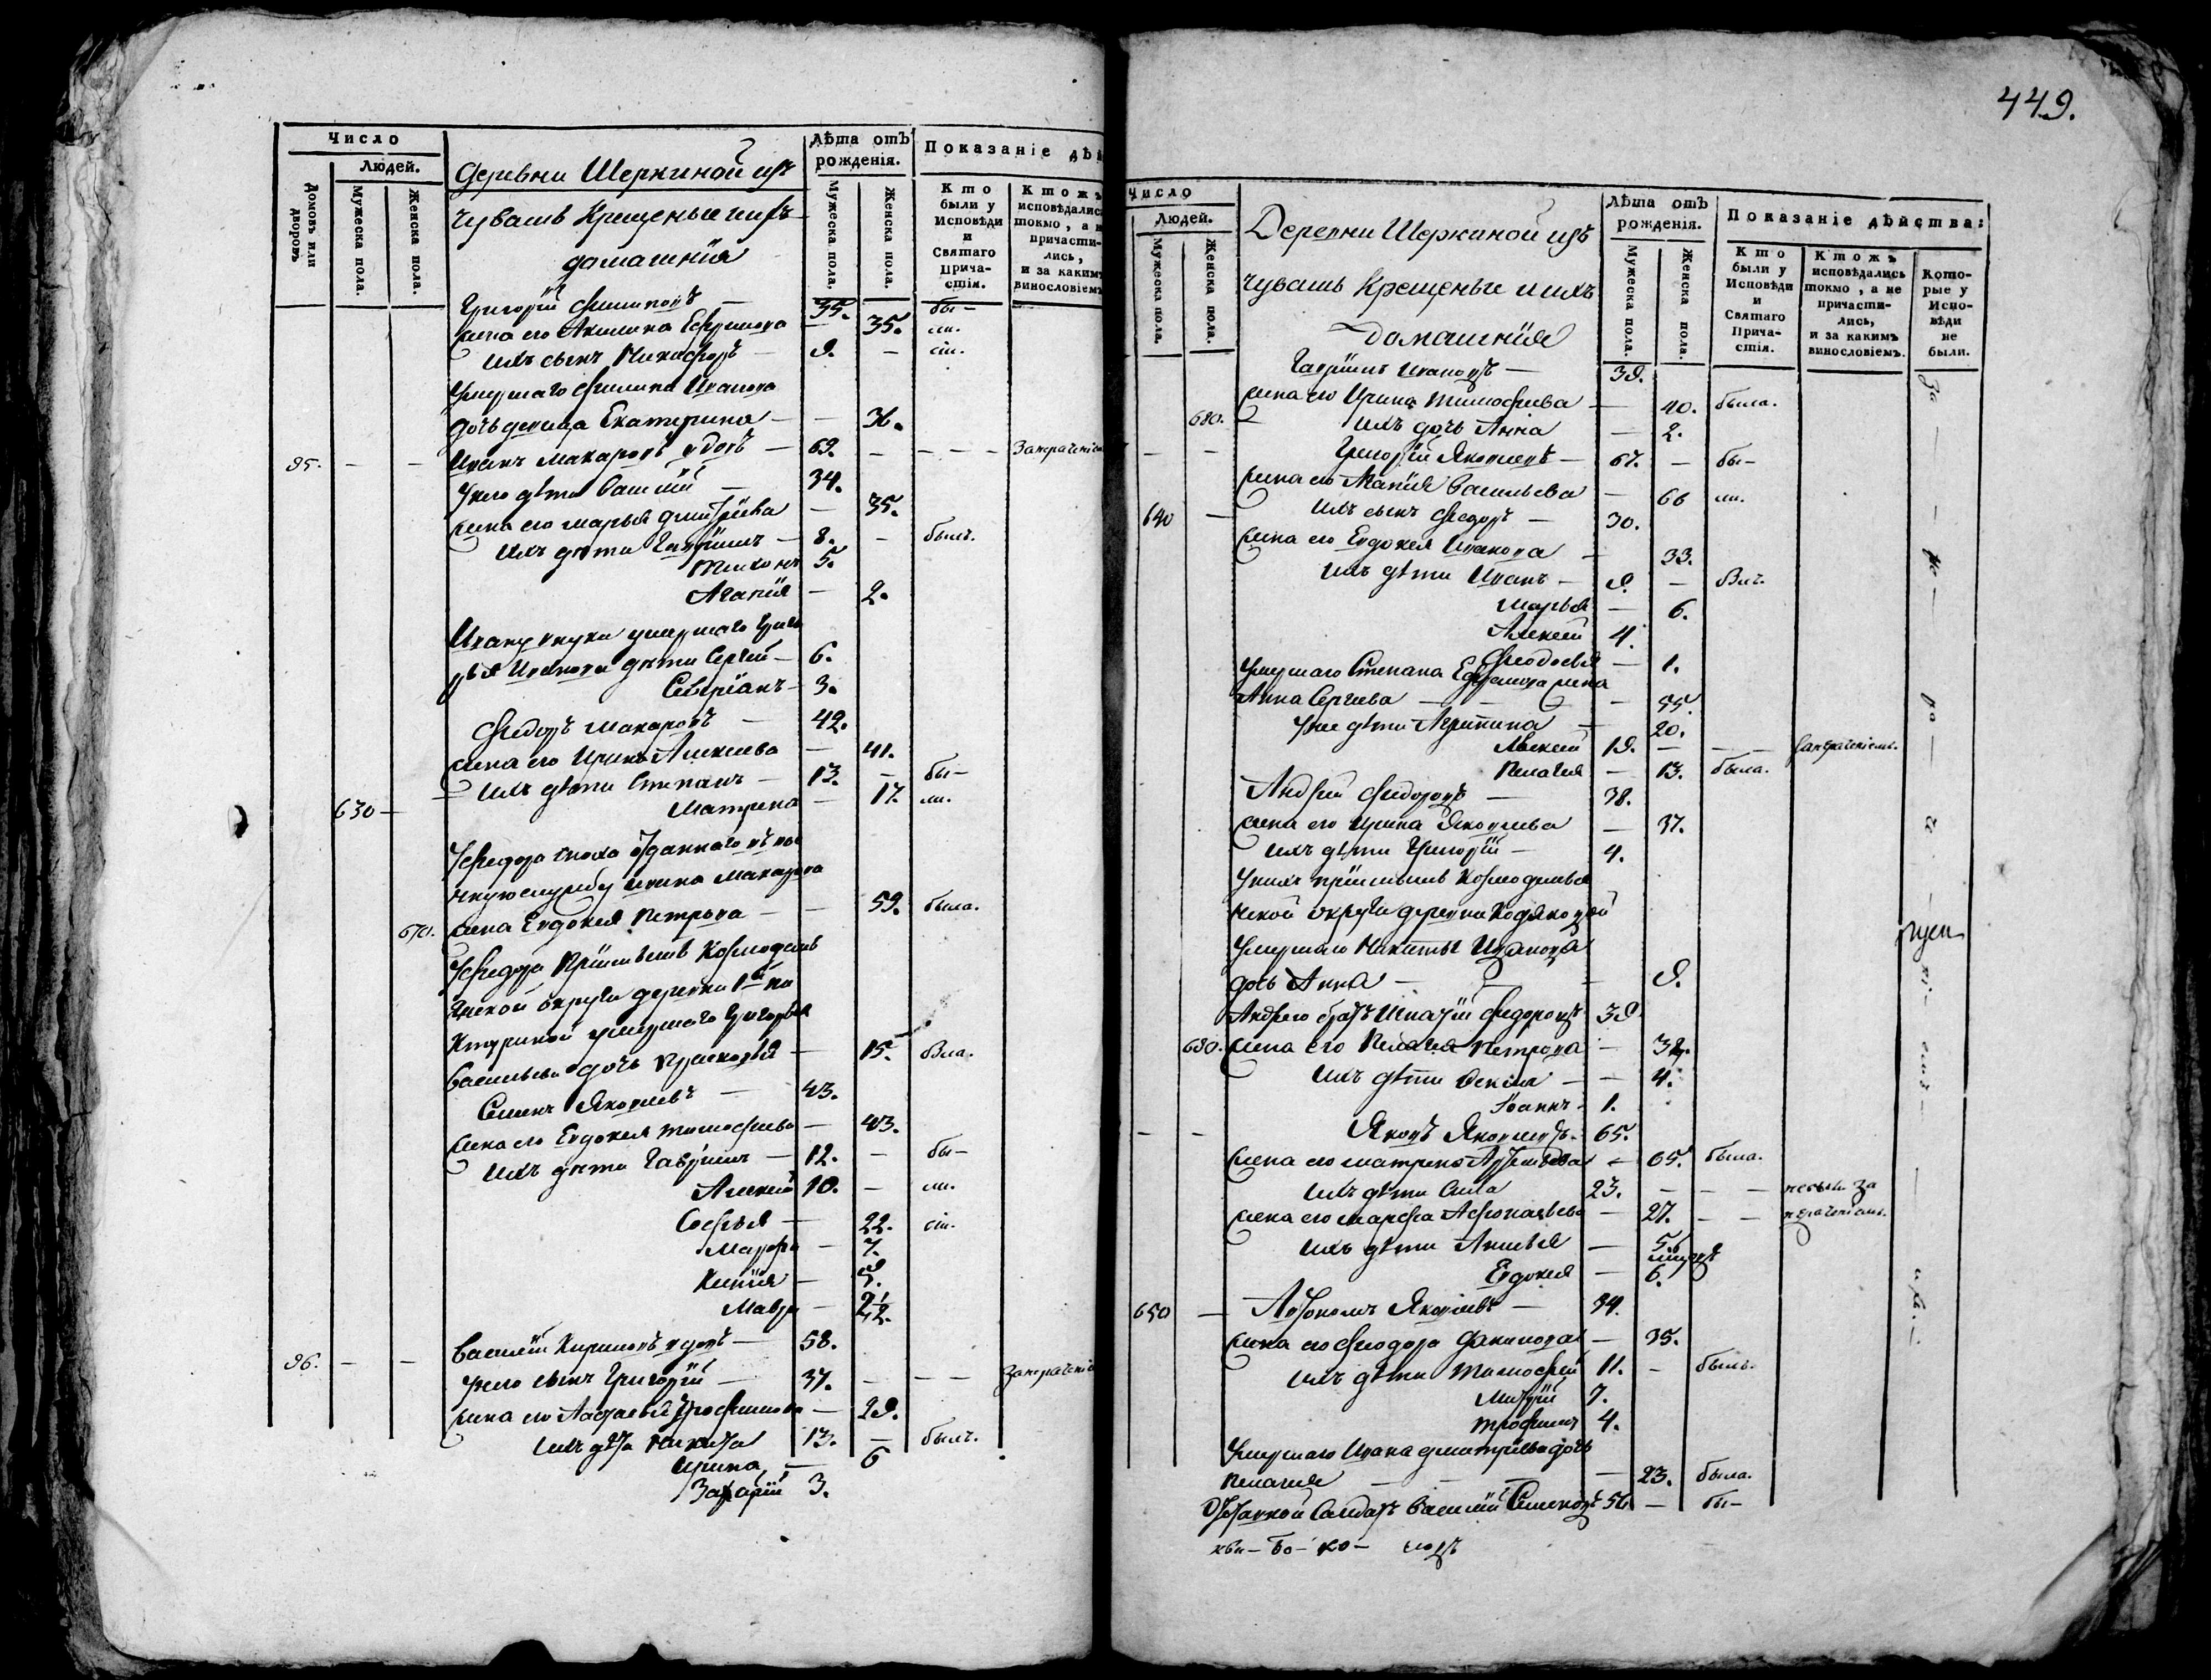 449.
Число
Людей.
Домовъ или дворовъ
Мужеска пола.
Женска пола.
Деревни Шеркиной изъ
чувашъ Крещеные и ихъ
домашнiя
Лѣта отъ рожденiя.
Мужеска пола.
Женска пола.
Показанiе дѣй
Кто были у Исповѣди и Святаго Прича- стiя.
Ктожъ исповѣдались токмо, а не причасти- лись, и за какимъ винословiемъ
Григорiй Филиповъ — 35. бы-
жена его Акилина Ефремова — 35. ли.
ихъ сынъ Никифоръ — 9. — сiи.
Умершаго Филипа Иванова
дочь девица Екатерина — — 36.
95. — — Иванъ Макаровъ вдовъ — 69. — — — —
У него дѣти Василiй — 34.
жена его Марья Дмитрiева — 35.
ихъ дѣти Гаврiилъ — 8. — былъ.
Тихонъ 5.
Агапiя — 2.
Ивану внуки умершаго Григо
рья Иванова дѣти Сергей — 6.
Северiанъ — 3.
Федоръ Макаровъ — 42.
жена его Ирина Алексеева — 41.
ихъ дѣти Степанъ — 13. — бы-
630 — Матрена — 17. ли.
У Федора сноха отданнаго въ во
енную службу Ивана Макарова
670. жена Евдокея Петрова — — 59. была.
У Федора прiемышъ Козмодемь
янской округи деревни
умершаго Григорья
Васильева дочь Прасковья — 15. Бла.
Семенъ Яковлевъ — 43.
жена его Евдокея Тимофеева — 43.
ихъ дѣти Гаврiилъ — 12. — бы-
Алексей 10. — ли.
Софья — 22. сiи.
Марфа — 7.
— 5.
Мавра — 2 1/2.
96. — — Василiй Кириловъ вдовъ — 58.
У него сынъ Григорiй — 37. — — —
жена его Настасья Трофимова — 29.
ихъ дѣти Никита 13. — былъ.
Ирина — 6
Захарiй 3.
Число
Людей.
Мужеска пола.
Женска пола.
Деревни Шеркиной изъ
чувашъ Крещеные и ихъ
домашнiя
Лѣта отъ рожденiя.
Мужеска пола.
Женска пола.
Показанiе дѣйства:
Кто были у Исповѣди и Святаго Прича- стiя.
Ктожъ исповѣдались токмо, а не причасти- лись, и за какимъ винословiемъ.
Кото- рые у Испо- вѣди не были.
Гаврiилъ Ивановъ — 39.
жена его Ирина Тимофеева — 40. была.
680. ихъ дочь Анна — 2.
— — Григорiй Яковлевъ — 67. — бы-
жена его Васильева — 66 ли.
640 — ихъ сынъ Федоръ — 30.
жена его Евдокея Иванова — 33.
ихъ дѣти Иванъ — 9. —
Марья — 6.
Алексей 4.
Феодосья — 1.
Умершаго Степана Ефремова жена
Анна Сергеева — — — 55.
У нее дѣти Агрипина — 20.
Алексей 19. — — —
Пелагея — 13. была.
Андрей Федоровъ — 38.
жена его Ирина Яковлева — 37.
ихъ дѣти Григорiй — 4.
У нихъ прiемышъ Козмодемья
нской округи деревни
Умершаго Никиты Иванова
дочь Анна — — — 9.
Андрею братъ Игнатiй Федоровъ 39.
690. жена его Пелагея Петрова — 32.
ихъ дѣти — — 4.
Iоаннъ — 1.
— — Яковъ Яковлевъ. 65.
жена его Матрена — 65. была.
ихъ дѣти Сила 23. — — —
жена его Марфа Афонасьева — 27. — —
ихъ дѣти — 5.
Евдокея — 6.
650 — Артономъ Яковлевъ — 34.
жена его Феодора Данилова — 35.
ихъ дѣти Тимофей 11. — былъ.
7.
Трофимъ 4.
Умершаго Ивана Дмитрiева дочь
Пелагея — — — 23. была.
Отставной Салдатъ Василiй Семеновъ 56. — бы-